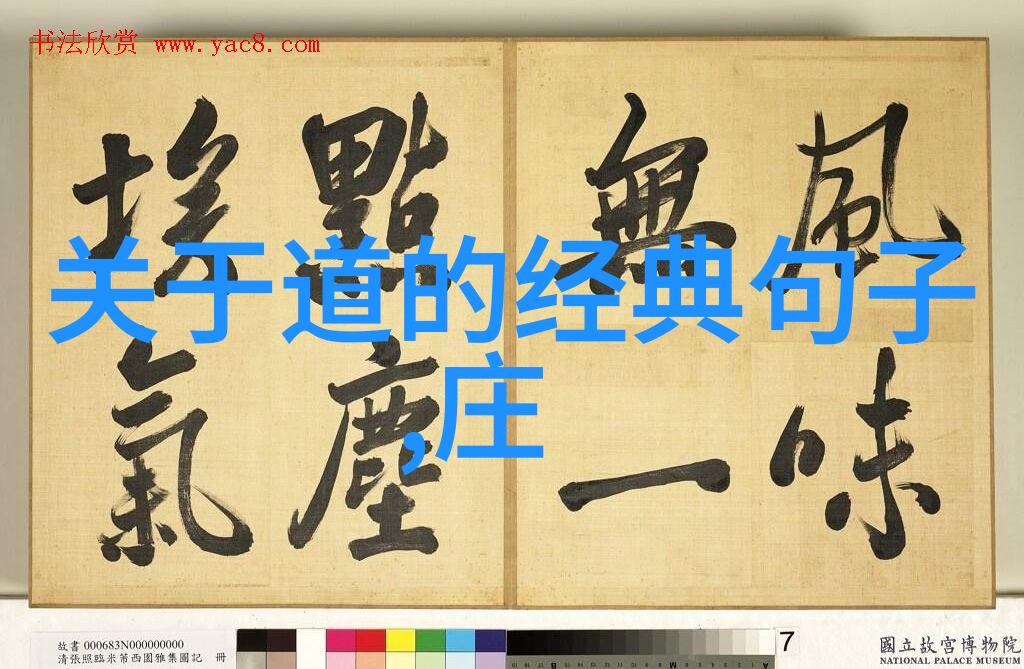 书法欣赏 www.yac8.com
風味
無一
點塵
埃氣
关于道的经典句子
,庄
7
故書 000683N000000000
清張照臨米芾西園雅集圖記 冊
國立故宮博物院
NATIONAL PALACE MUSEUM